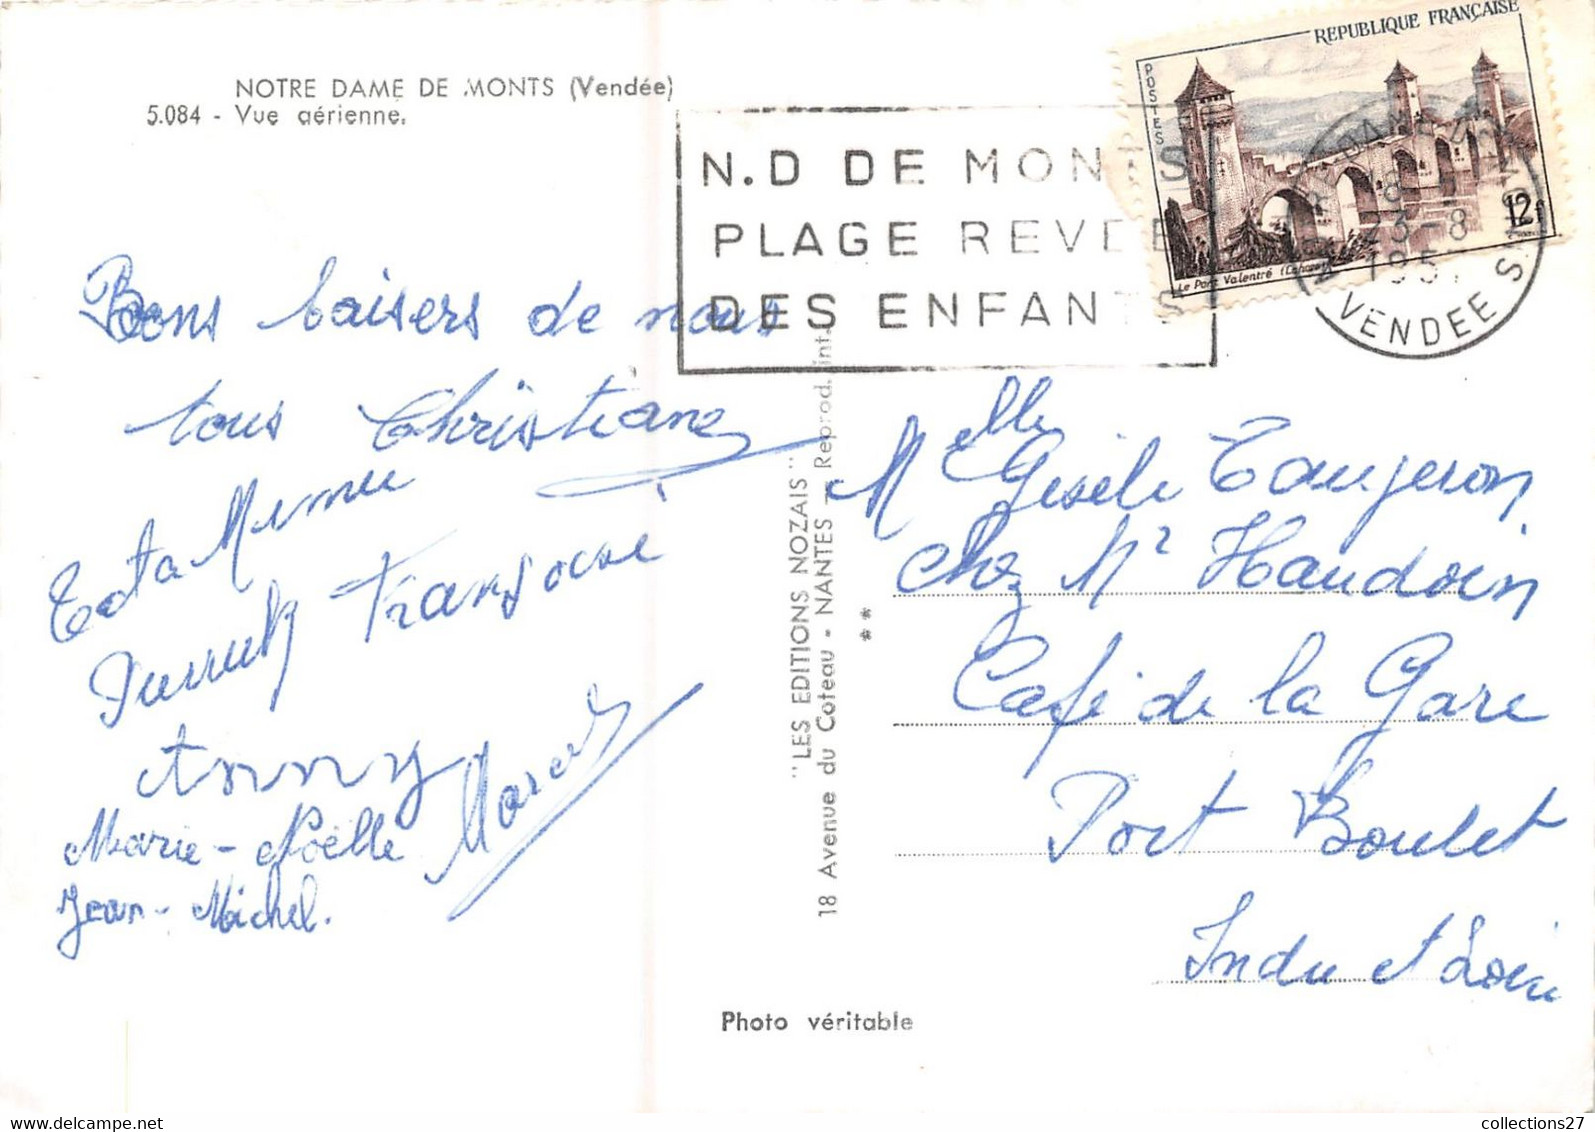 NOTRE DAME DE MONTS (Vendée)
5.084 - Vue aérienne.
REPUBLIQUE FRANÇAISE
POSTES
12f
Le Pont Valentré (Cahors)
N.D DE MONTS
PLAGE REVEE
DES ENFANTS
18
23-8
195
VENDEE
Bons baisers de nous
tous Christiane
Tata Mimie
Françoise
Anny
Marcel
Marie-Noëlle
Jean-Michel.
"LES EDITIONS NOZAIS"
18 Avenue du Coteau - NANTES - Reprod. int.
**
Melle Gisèle Taugeron
Chez Mr Haudoin
Café de la Gare
Port Boulet
Indre et Loire
Photo véritable
collections27